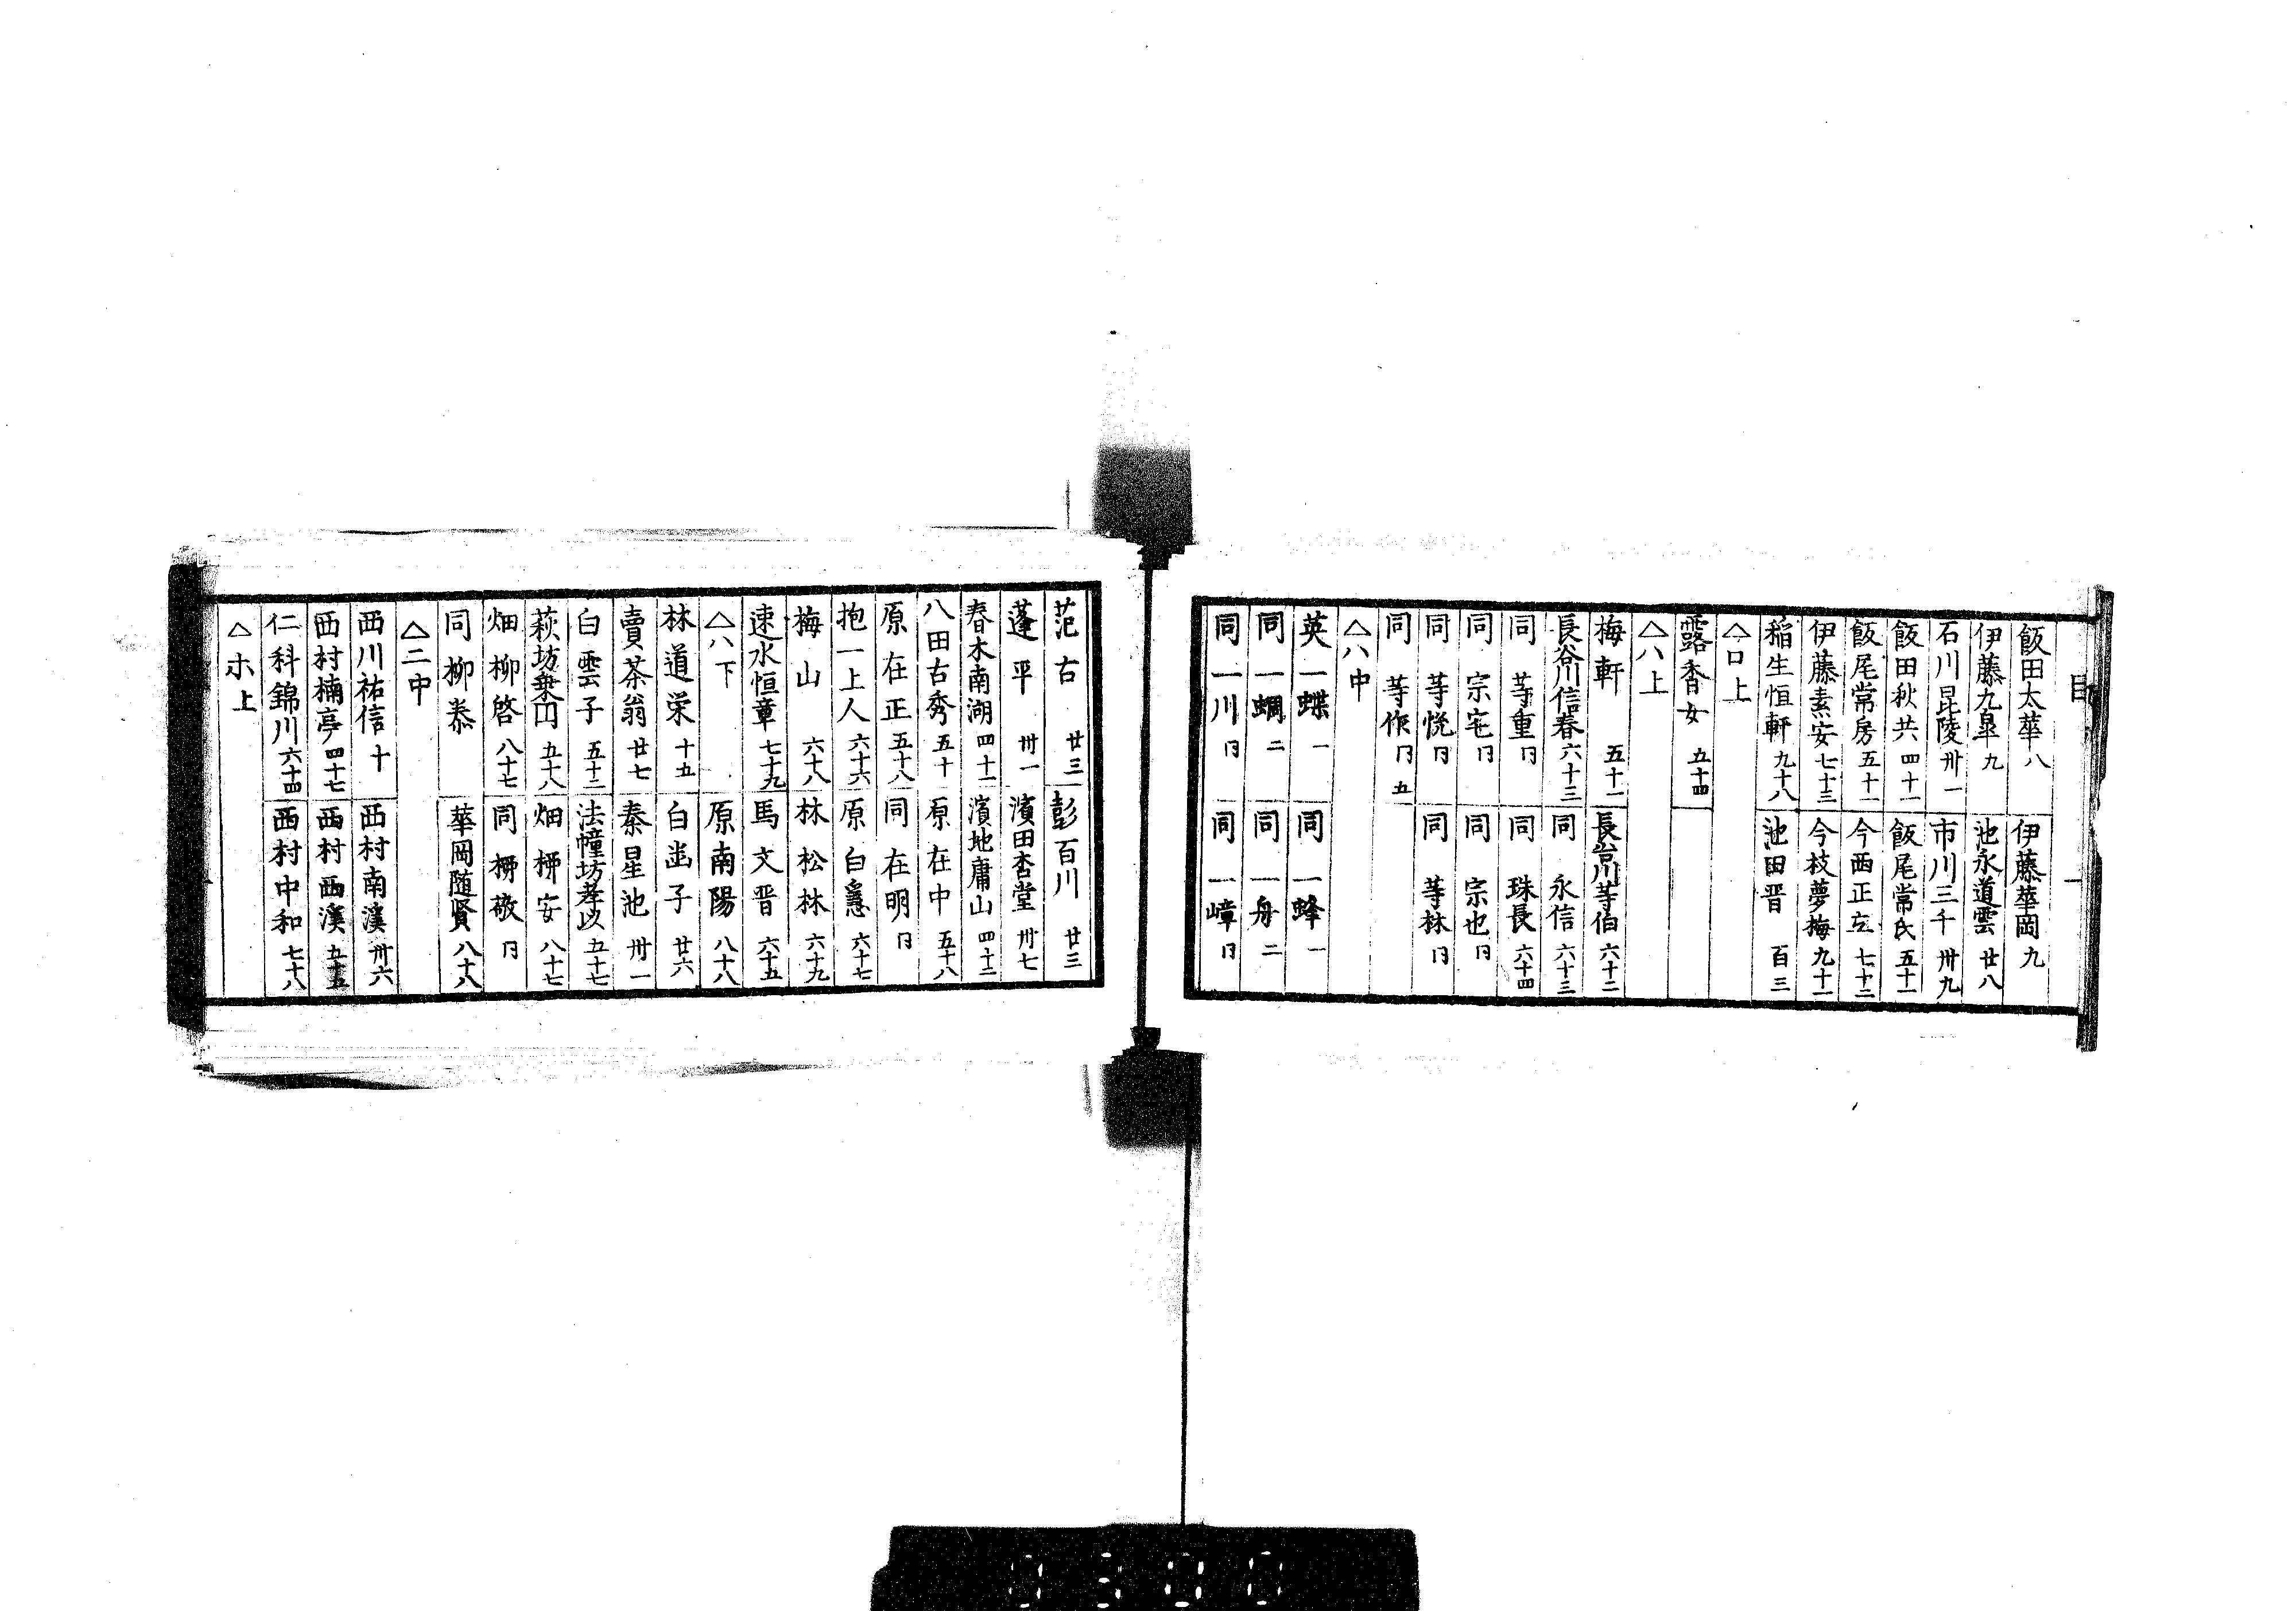 目
一
飯田太華 八 伊藤華岡 九
伊藤九皐 九 池永道雲 廿八
石川昆陵 卅一 市川三千 卅九
飯田秋共 四十一 飯尾常氏 五十一
飯尾常房 五十一 今西正立 七十二
伊藤素安 七十三 今枝夢梅 九十一
稲生恒軒 九十八 池田晋 百三
△ロ上
露香女 五十四
△ハ上
梅軒 五十一 長谷川等伯 六十二
長谷川信春 六十三 同 永信 六十三
同 等重 冂 同 珠長 六十四
同 宗宅 冂 同 宗也 冂
同 等悦 冂 同 等林 冂
同 等作 冂 五
△ハ中
英一蝶 一 同一蜂 一
同一蜩 二 同一舟 二
同一川 冂 同一嶂 冂
范古 廿三 彭百川 廿三
蓬平 卅一 濱田杏堂 卅七
春木南湖 四十一 濱地庸山 四十二
八田古秀 五十 原在中 五十八
原在正 五十八 同在明 冂
抱一上人 六十六 原白隠 六十七
梅山 六十八 林松林 六十九
速水恒章 七十九 馬文晋 六十五
△ハ下 原南陽 八十八
林道栄 十五 白幽子 廿六
賣茶翁 廿七 秦星池 卅一
白雲子 五十二 法幢坊孝以 五十七
萩坊乗円 五十八 畑柳安 八十七
畑柳啓 八十七 同柳敬 冂
同柳泰 華岡随賢 八十八
△ニ中
西川祐信 十 西村南渓 卅六
西村楠亭 四十七 西村西渓
仁科錦川 六十四 西村中和 七十八
△ホ上